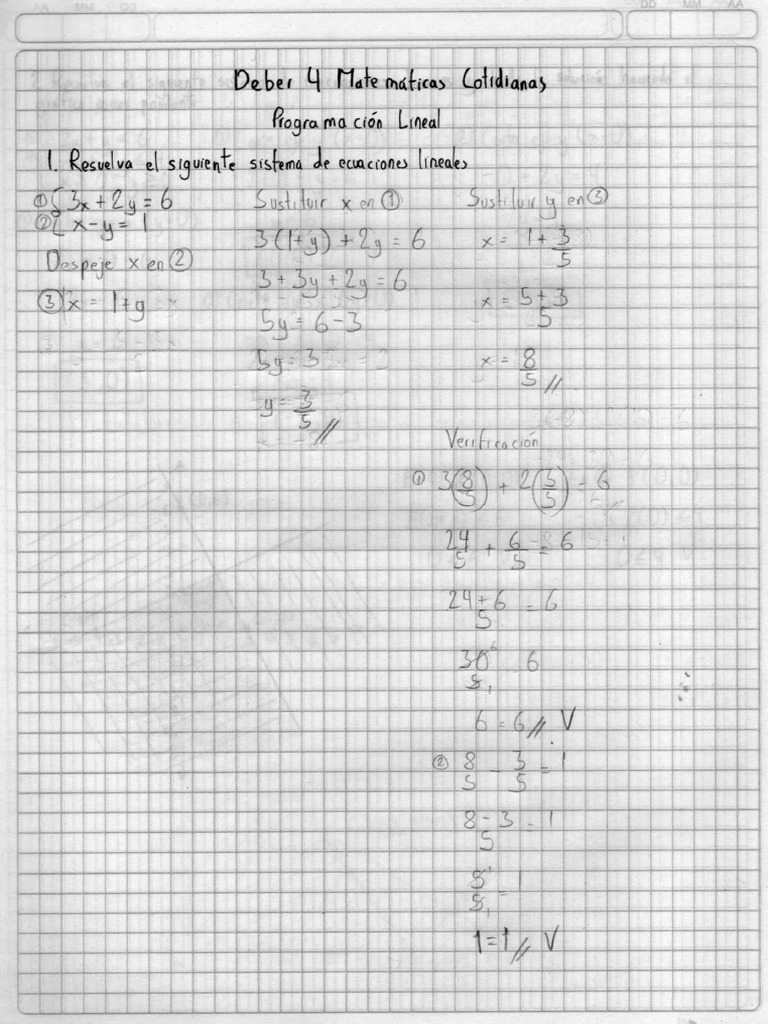 Deber 4 Matemáticas Cotidianas
Programación Lineal
1. Resuelva el siguiente sistema de ecuaciones lineales
① { 3x + 2y = 6
② { x - y = 1
Despeje x en ②
③ x = 1 + y
Sustituir x en ①
3(1+y) + 2y = 6
3 + 3y + 2y = 6
5y = 6 - 3
5y = 3
y = 3/5 //
Sustituir y en ③
x = 1 + 3/5
x = 5+3/5
x = 8/5 //
Verificación
① 3(8/5) + 2(3/5) = 6
24/5 + 6/5 = 6
24+6/5 = 6
30/5 6
6 = 6 // V
② 8/5 - 3/5 = 1
8-3/5 = 1
5/5 = 1
1 = 1 // V